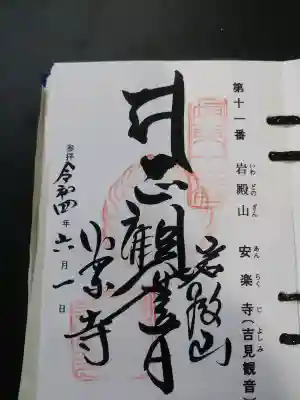 第十一番 岩殿山 安楽寺(吉見観音)
いわ どの ざん あん らく じ よしみ
岩殿山
正觀世音
安楽寺
参拝 令和四年六月一日